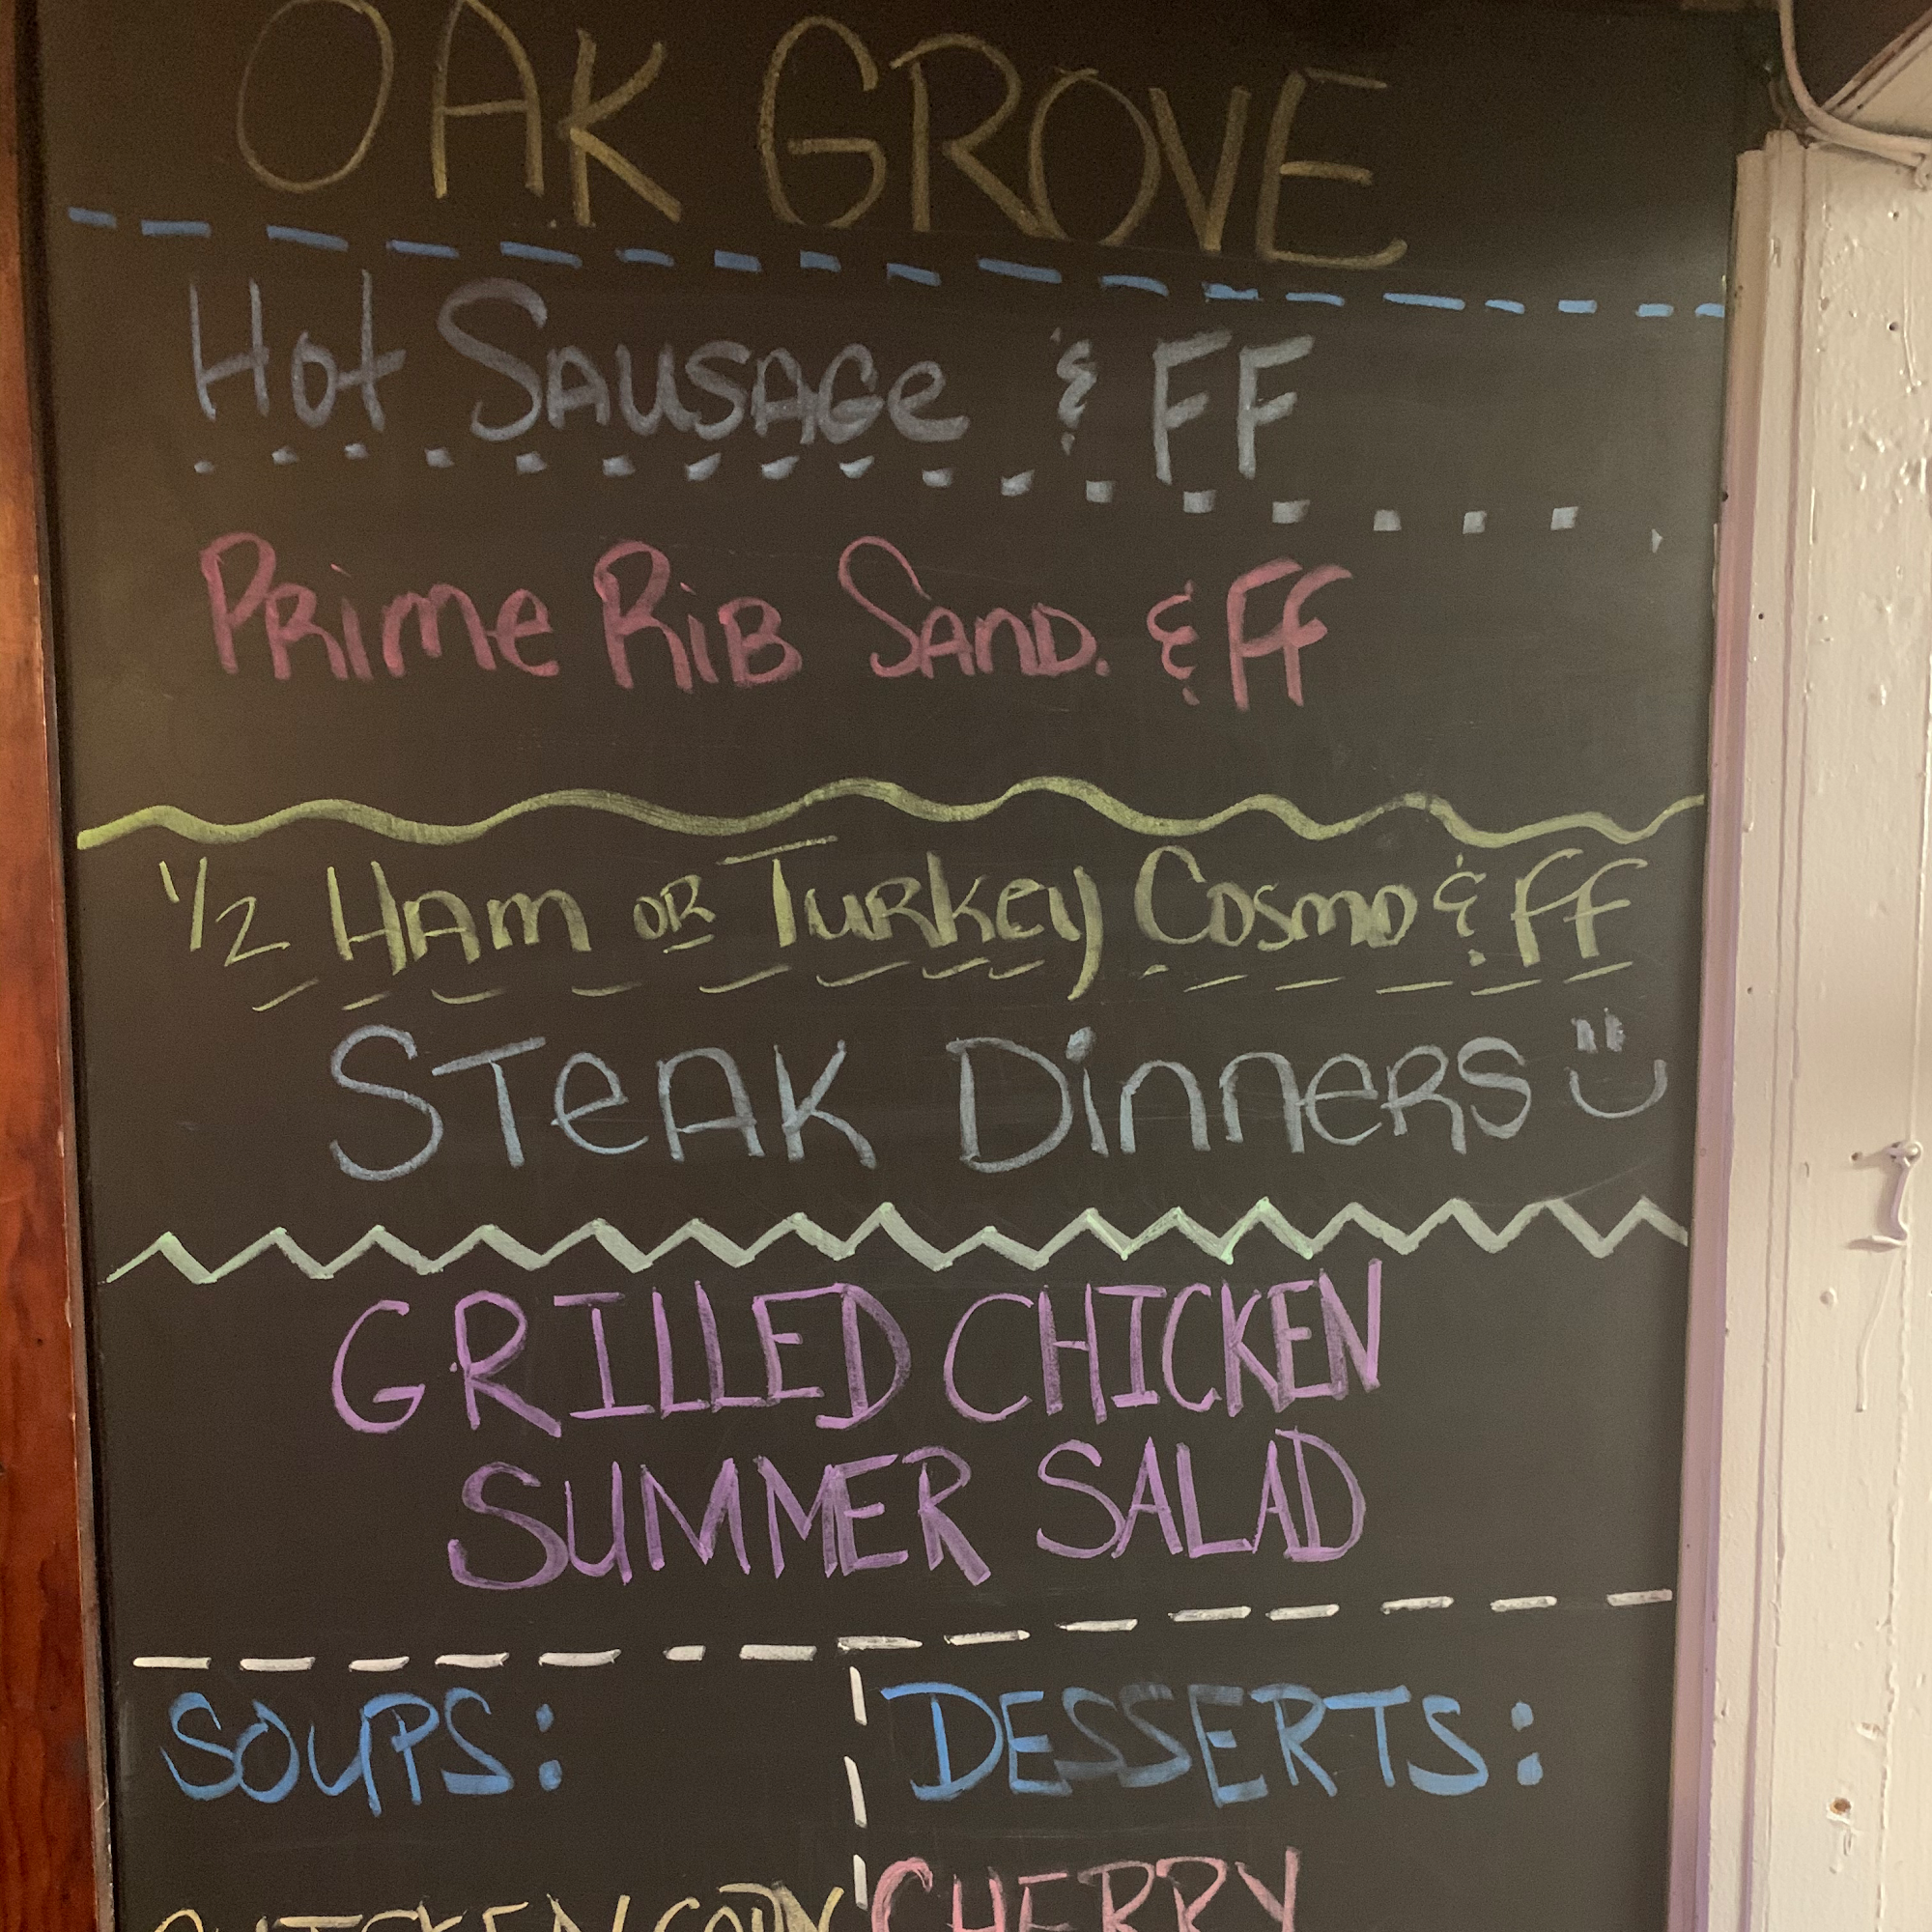 OAK GROVE
Hot SAUSAGe & FF
PRime RiB SAnD. & FF
1/2 HAm OR TuRKey Cosmo & FF
STeAK DinneRS
GRILLED CHICKEN
SUMMER SALAD
SOUPS: DESSERTS:
CHICKEN CORN CHERRY